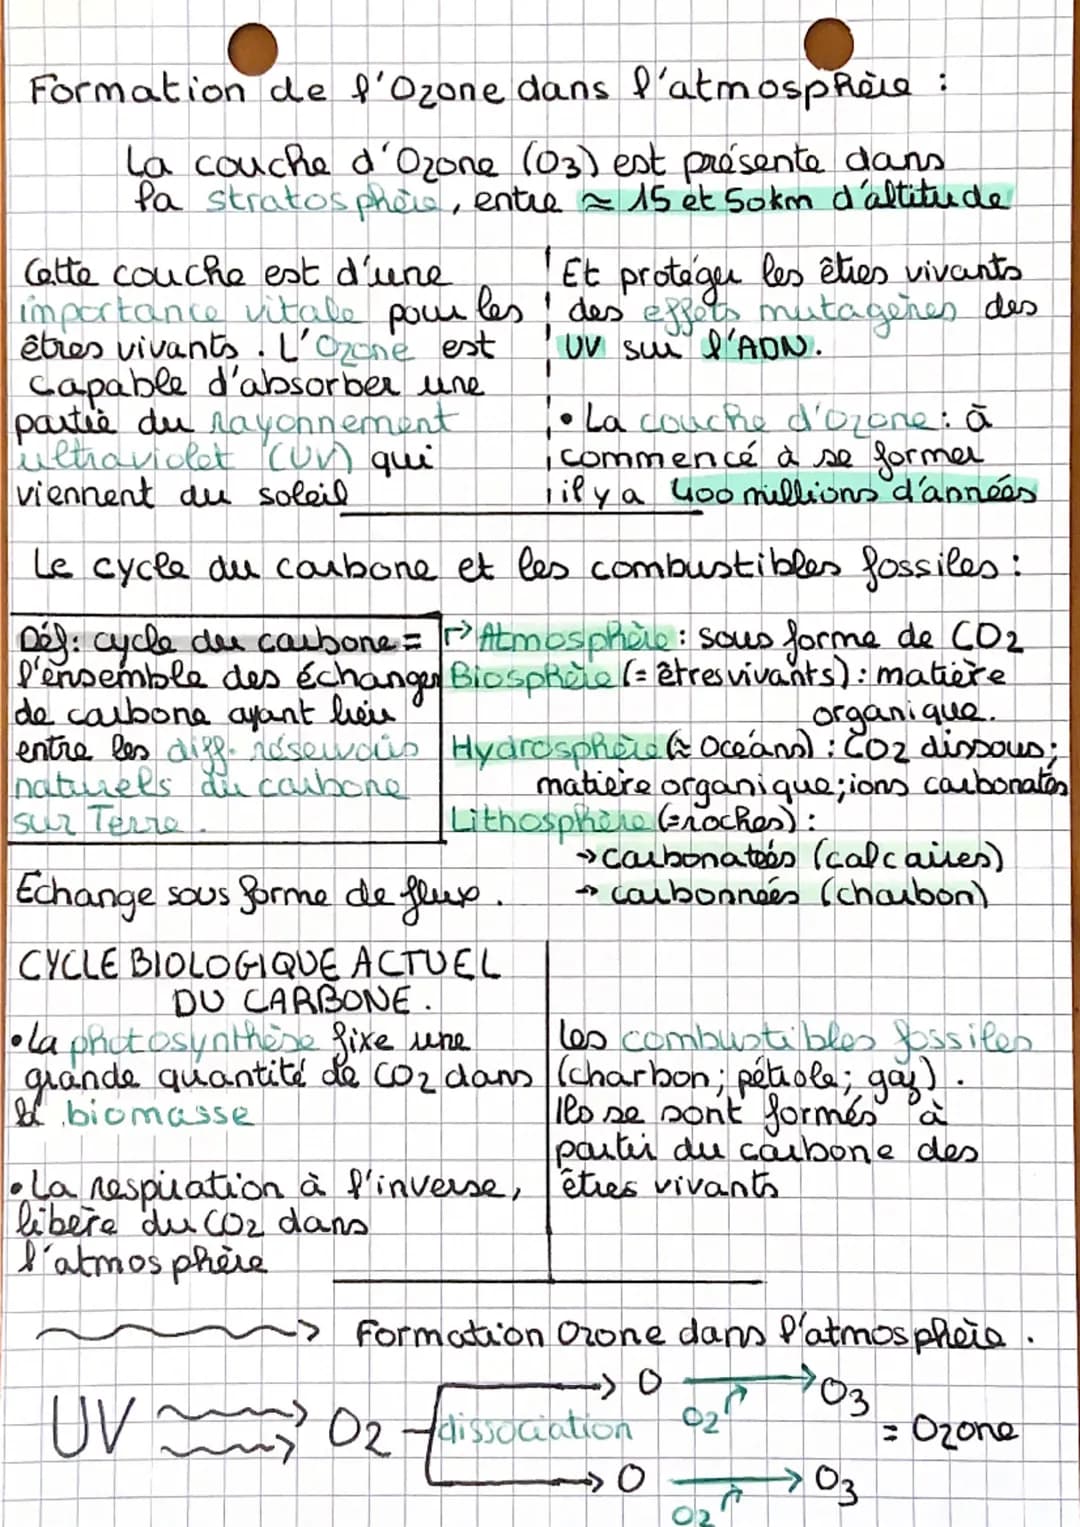 Formation de l'Ozone dans l'atmosphère :
La couche d'Ozone (O3) est présente dans
la stratosphère, entre ≈ 15 et 50km d'altitude
Cette couche est d'une
importance vitale pour les
êtres vivants. L'Ozone est
capable d'absorber une
partie du rayonnement
ultraviolet (UV) qui
viennent du soleil
Et protéger les êtres vivants
des effets mutagènes des
UV sur l'ADN.
• La couche d'Ozone : à
commencé à se former
il y a 400 millions d'années
Le cycle du carbone et les combustibles fossiles :
Déf: cycle du carbone =
l'ensemble des échanges
de carbone ayant lieu
entre les diff. réservoirs
naturels du carbone
sur Terre.
Echange sous forme de flux.
→ Atmosphère : sous forme de CO2
Biosphère (= êtres vivants) : matière
organique.
Hydrosphère (≈ Océans) : CO2 dissous;
matière organique; ions carbonatés
Lithosphère (=roches) :
→ carbonatées (calcaires)
→ carbonnées (charbon)
CYCLE BIOLOGIQUE ACTUEL
DU CARBONE.
• La photosynthèse fixe une
grande quantité de CO2 dans
la biomasse
• La respiration à l'inverse,
libère du CO2 dans
l'atmosphère
Les combustibles fossiles
(charbon; pétrole; gaz).
Ils se sont formés à
partir du carbone des
êtres vivants
→ Formation Ozone dans l'atmosphère.
UV → O2 dissociation
→ O O2 → O3
= Ozone
→ O O2 → O3